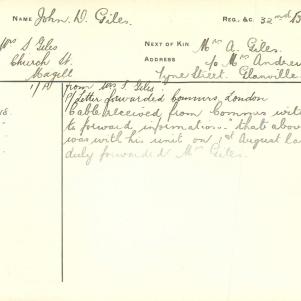 NAME John D. Giles. REG. &c. 32nd B
Mrs S Giles NEXT OF KIN Mrs A. Giles.
Church St. ADDRESS c/o Mr Andrew
Magill Tyne Street. Glanville
from Mrs S. Giles
Letter forwarded Commrs, London
18. Cable received from Commrs
to forward information "that above
was with his unit on 1st August la
duly forwarded Mrs Giles.